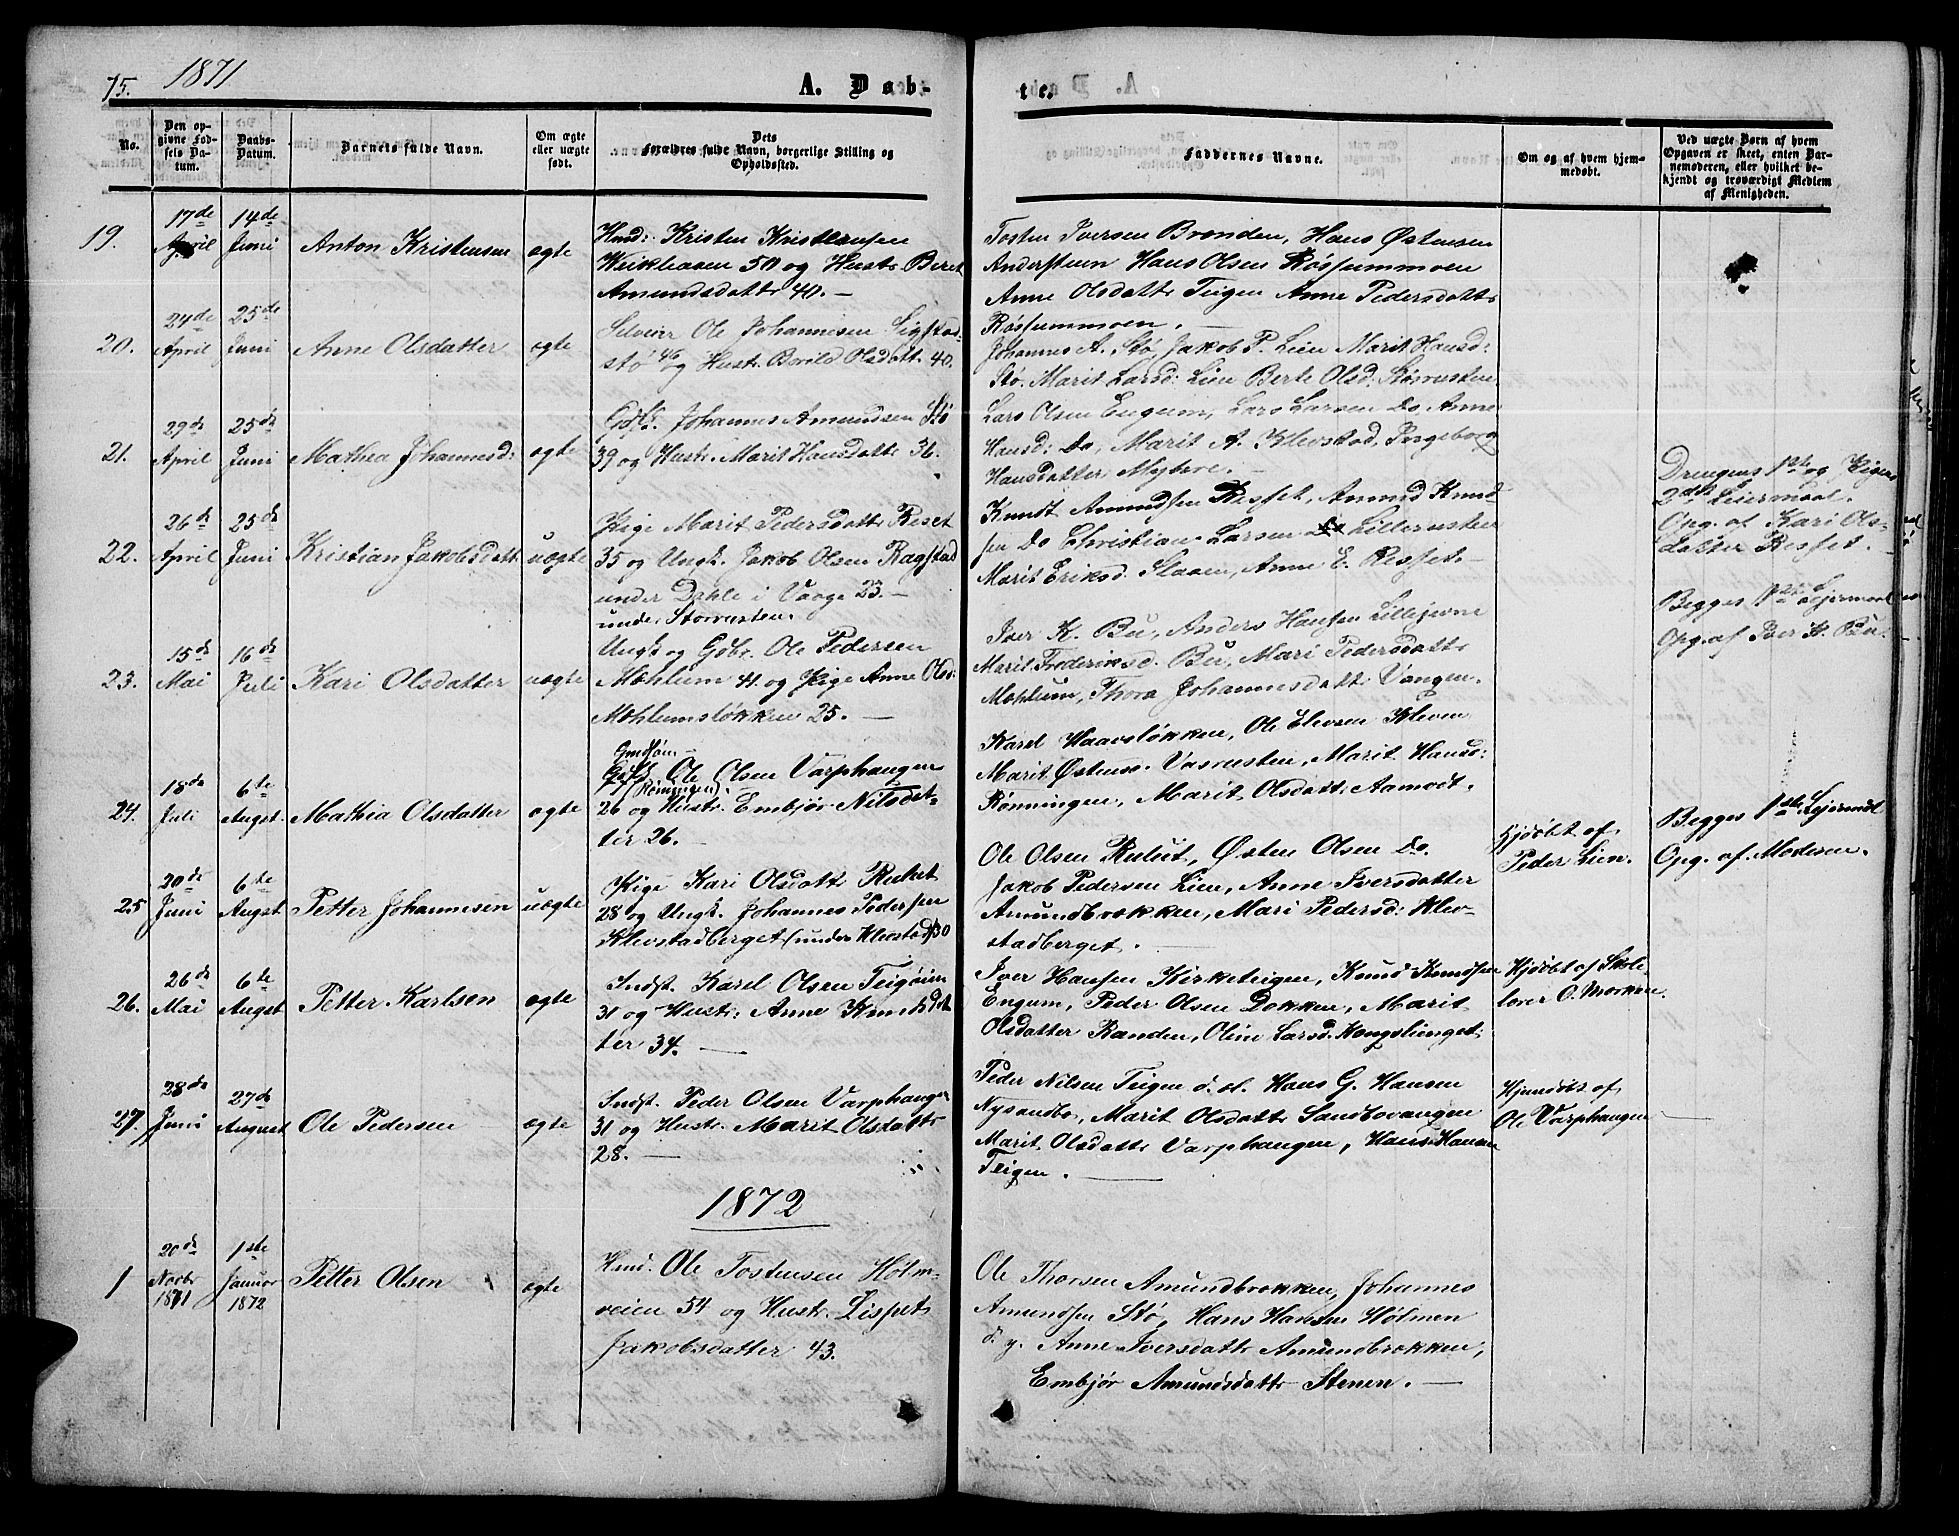 75. 1871
A. Døb-
te.
No.
Den op-
givne Fød-
sels Da-
tum.
Daabs-
Datum.
Barnets fulde Navn.
Om ægte
eller uægte
født.
Dets
Forældres fulde Navn, borgerlige Stilling og
Opholdssted.
Faddernes Navne.
Om og af hvem hjem-
medøbt.
Ved uægte Børn af hvem
Opgaven er skeet, enten Bar-
nemoderen, eller hvilket be-
kjendt og troværdigt Medlem
af Menigheden.
19.
17de
April
14de
Juni
Anton Kristensen
ægte
Hmd: Kristen Kristiansen
50 og Hustr. Beret
Amundsdattr 40. —
Tosten Iversen Brenden, Hans Østensen
Hans Olsen Røssummoen
Anne Olsdattr Teigen Anne Pedersdattr
Røssummoen. —
20.
24de
April
25de
Juni
Anne Olsdatter
ægte
Selveier Ole Johannesen Sigstad-
stø 46 og Hustr. Borild Olsdatt. 40.
Johannes A. Stø, Jakob P. Lien Marit Hansd:
Stø. Marit Larsd: Lien Berte Olsd: Støvrusten.
21.
29de
April
25de
Juni
Mathea Johannesd:
ægte
Johannes Amundsen Stø
39 og Hustr. Marit Hansdattr 36.
Lars Olsen Engum, Lars Larsen Do Anne
Hansd: Do, Marit A. Klevstad, Ingeborg
Hansdatter Myhre. —
22.
26de
April
25de
Juni
Kristian Jakobsdatt
uægte
Pige Marit Pedersdattr Reset
35 og Ungk. Jakob Olsen Ragstad
under Dahle i Vaage 23. —
under Storrusten.
Knudt Amundsen Resset, Amund Knud-
sen Do Christian Larsen Do Lillerusten
Marit Eriksd. Slaaen, Anne E. Resset —
Drengens 1ste og Pigens
2det Leiermaal.
Opg. af Kari Ols-
datter Resset. —
23.
15de
Mai
16de
Juli
Kari Olsdatter
uægte
Ungk og Gdbr. Ole Pedersen
Mæhlum 41. og Pige Anne Olsd:
Mæhlumsløkken 25. —
Iver K. Bu, Anders Hansen
Marit Frederiksd. Bu, Mari Pedersdattr
Mæhlum, Thora Johannesdattr Vangen.
Begges 1ste Lejermaal
Opg. af Iver K. Bu. —
24.
18de
Juli
6te
Augst.
Mathia Olsdatter
ægte
Ole Olsen Varphaugen
(Rønningen).
26 og Hustr. Embjør Nilsdat-
ter 26. —
Karel Haavsløkken, Ole Elevsen Kleven
Marit Østensd. Vasrusten, Marit Hansd:
Rønningen, Marit Olsdattr Aamodt.
25
20de
Juni
6te
Augst
Petter Johannesen
uægte
Pige Kari Olsdattr Rulut
28 og Ungk. Johannes Pedersen
Klevstadberget (under Klevstad) 30
Ole Olsen Rulut, Østen Olsen Do.
Jakob Pedersen Lien, Anne Iversdatter
Amundbrækken, Mari Pedersd: Klev-
stadberget. —
Hjdøbt af
Peder Lien.
Begges 1ste Lejermaal
Opg. af Moderen.
26.
26de
Mai
6te
Augst
Petter Karlsen
ægte
Indst. Karel Olsen
31 og Hustr: Anne Knudsdat-
ter 34. —
Iver Hansen Kirketeigen, Knud Knudsen
Engum, Peder Olsen Dokken, Marit
Olsdatter Randen, Oline Larsd. Kongslunget.
Hjdøbt af Skole-
lærer O. Morken.
27.
28de
Juni
27de
August
Ole Pedersen
ægte
Indst. Peder Olsen Varphaugen
31 og Hustr. Marit Olsdattr
28. —
Peder Nilsen Teigen d. æl. Hans G. Hansen
Nysandbo, Marit Olsdattr Sandbovangen
Marit Olsdattr Varphaugen, Hans Hansen
Teigen. —
Hjemdøbt af
Ole Varphaugen
1872
1
20de
Novbr
1871
1ste
Januar
1872
Petter Olsen
ægte
Hmd. Ole Tostensen Hølm-
veien 54 og Hustr. Lispet
Jakobsdatter 43.
Ole Thorsen Amundbrækken, Johannes
Amundsen Stø, Hans Hansen Hølmen
d. y. Anne Iversdattr Amundbrækken,
Embjør Amundsdattr Stenen. —